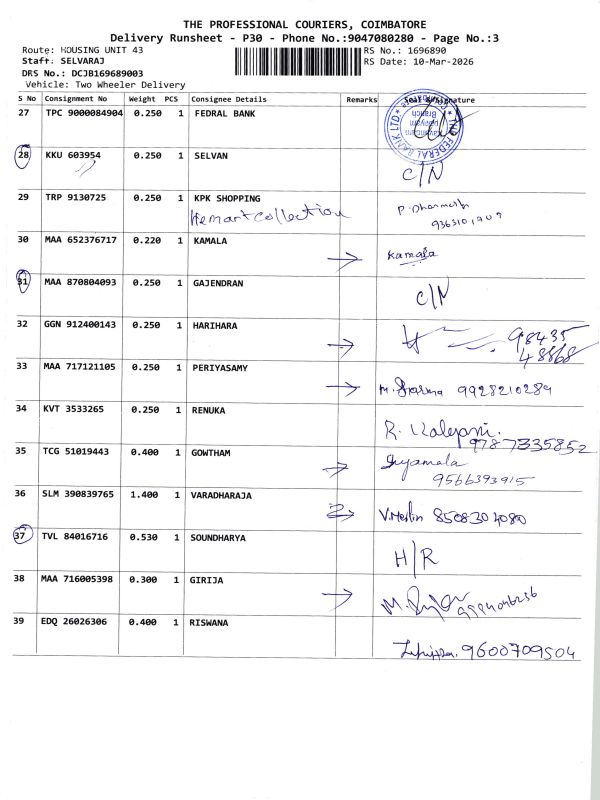 THE PROFESSIONAL COURIERS, COIMBATORE
Delivery Runsheet - P30 - Phone No.:9047080280 - Page No.:3
Route: HOUSING UNIT 43 RS No.: 1696890
Staff: SELVARAJ RS Date: 10-Mar-2026
DRS No.: DCJB169689003
Vehicle: Two Wheeler Delivery
S No Consignment No Weight PCS Consignee Details Remarks Seal & Signature
27 TPC 9000084904 0.250 1 FEDRAL BANK
THE FEDERAL BANK LTD
Branch
28 KKU 603954 0.250 1 SELVAN C/N
29 TRP 9130725 0.250 1 KPK SHOPPING
Hemant Collection
30 MAA 652376717 0.220 1 KAMALA Kamala
31 MAA 870804093 0.250 1 GAJENDRAN C/N
32 GGN 912400143 0.250 1 HARIHARA 98435
48868
33 MAA 717121105 0.250 1 PERIYASAMY 9928210289
34 KVT 3533265 0.250 1 RENUKA R. Kalepani.
9787335852
35 TCG 51019443 0.400 1 GOWTHAM Shyamala
9566393915
36 SLM 390839765 1.400 1 VARADHARAJA V.Merlin 8508304080
37 TVL 84016716 0.530 1 SOUNDHARYA H/R
38 MAA 716005398 0.300 1 GIRIJA
39 EDQ 26026306 0.400 1 RISWANA 9600709504